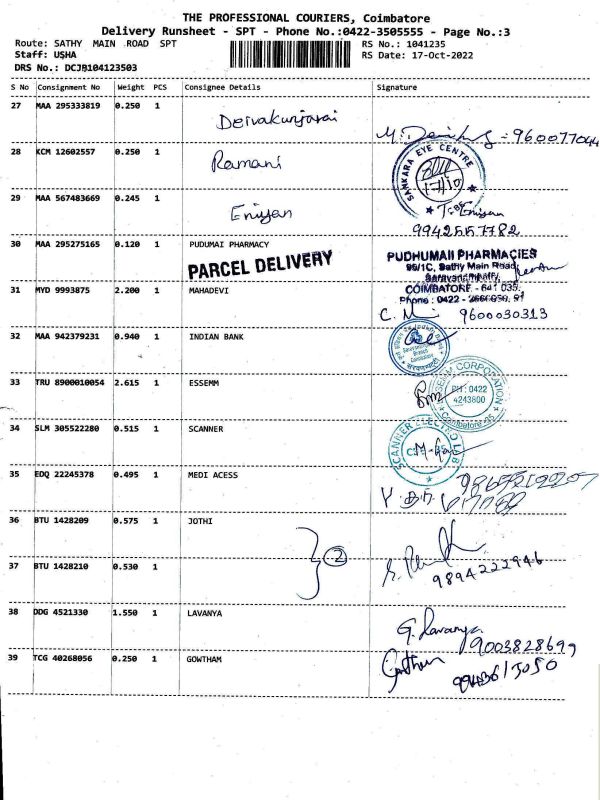 THE PROFESSIONAL COURIERS, Coimbatore
Delivery Runsheet - SPT - Phone No.:0422-3505555 - Page No.:3
Route: SATHY MAIN ROAD SPT
RS No.: 1041235
Staff: USHA
RS Date: 17-Oct-2022
DRS No.: DCJB104123503
S No Consignment No Weight PCS Consignee Details Signature
27 MAA 295333819 0.250 1
Deivakunjarai
28 KCM 12602557 0.250 1 Ramani
SANKARA EYE CENTRE
17/10
29 MAA 567483669 0.245 1
Eniyan
9942557782
30 MAA 295275165 0.120 1 PUDUMAI PHARMACY
PARCEL DELIVERY
PUDHUMAII PHARMACIES
95/1C, Sathy Main Road,
COIMBATORE - 641 035.
31 MYD 9993875 2.200 1 MAHADEVI
9600030313
32 MAA 942379231 0.940 1 INDIAN BANK
33 TRU 8900010054 2.615 1 ESSEMM
CORPORATION
PH: 0422
4243800
Coimbatore-35
34 SLM 305522280 0.515 1 SCANNER
SCANNER ELECTRO LAB
35 EDQ 22245378 0.495 1 MEDI ACESS
36 BTU 1428209 0.575 1 JOTHI
2
37 BTU 1428210 0.530 1
9894222946
38 DDG 4521330 1.550 1 LAVANYA
G. Lavanya
9003828699
39 TCG 40268056 0.250 1 GOWTHAM
Gowtham